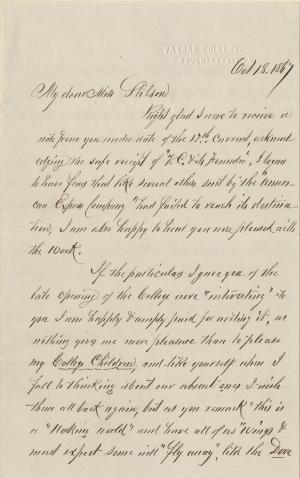 VASSAR COLLEGE.
POUGHKEEPSIE
Oct 18. 1867
My dear Miss Stilson
Right glad I were to receive a
note from you under date of the 17th. current, acknowl
edging the safe receipt of "V. C. & its Founder", I began
to have fears that like several others sent by the "Ameri
can Express Company" had failed to reach its destina-
tion, I am also happy to hear you were pleased with
the Work.
If the particulars I gave you of the
late opening of the College were "interesting" to
you I am happily & amply paid for writing it; as
nothing give me more pleasure than to please
my College Children, and like yourself when I
get to thinking about our absent ones I wish
them all back again, but as you remark "this is
a "Working world" and have all of us "Wings" &
must expect some will "fly away", like the Dove